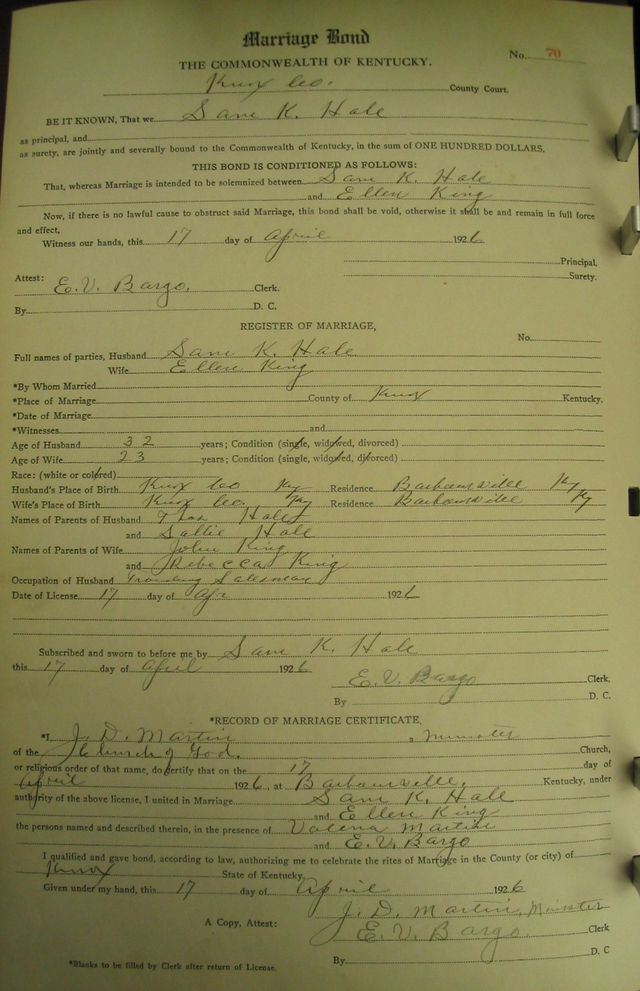 Marriage Bond
No. 70
THE COMMONWEALTH OF KENTUCKY.
Knox Co. County Court.
BE IT KNOWN, That we Sam K. Hale
as principal, and
as surety, are jointly and severally bound to the Commonwealth of Kentucky, in the sum of ONE HUNDRED DOLLARS.
THIS BOND IS CONDITIONED AS FOLLOWS:
That, whereas Marriage is intended to be solemnized between Sam K. Hale
and Ellen King
Now, if there is no lawful cause to obstruct said Marriage, this bond shall be void, otherwise it shall be and remain in full force
and effect,
Witness our hands, this 17 day of April 1926
Principal.
Surety.
Attest: E. V. Bargo. Clerk.
By D. C.
REGISTER OF MARRIAGE,
No.
Full names of parties, Husband Sam K. Hale
Wife Ellen King
*By Whom Married
*Place of Marriage County of Knox Kentucky.
*Date of Marriage
*Witnesses and
Age of Husband 32 years; Condition (single, widowed, divorced)
Age of Wife 23 years; Condition (single, widowed, divorced)
Race: (white or colored)
Husband's Place of Birth Knox Co Ky Residence Barbourville Ky
Wife's Place of Birth Knox Co. Ky Residence Barbourville Ky
Names of Parents of Husband Hale
and Sallie Hale
Names of Parents of Wife John King
and Rebecca King
Occupation of Husband Traveling Salesman
Date of License 17 day of Apr 1926
Subscribed and sworn to before me by Sam K. Hale
this 17 day of April 1926
E. V. Bargo Clerk,
By D. C.
*RECORD OF MARRIAGE CERTIFICATE,
*I, J. D. Martin, minister
of the Church of God. Church,
or religious order of that name, do certify that on the 17 day of
April 1926, at Barbourville, Kentucky, under
authority of the above license, I united in Marriage Sam K. Hale
and Ellen King
the persons named and described therein, in the presence of Valena Martin
and E. V. Bargo
I qualified and gave bond, according to law, authorizing me to celebrate the rites of Marriage in the County (or city) of
Knox State of Kentucky.
Given under my hand, this 17 day of April 1926
J. D. Martin, Minister
A Copy, Attest: E. V. Bargo. Clerk
By D. C
*Blanks to be filled by Clerk after return of License.